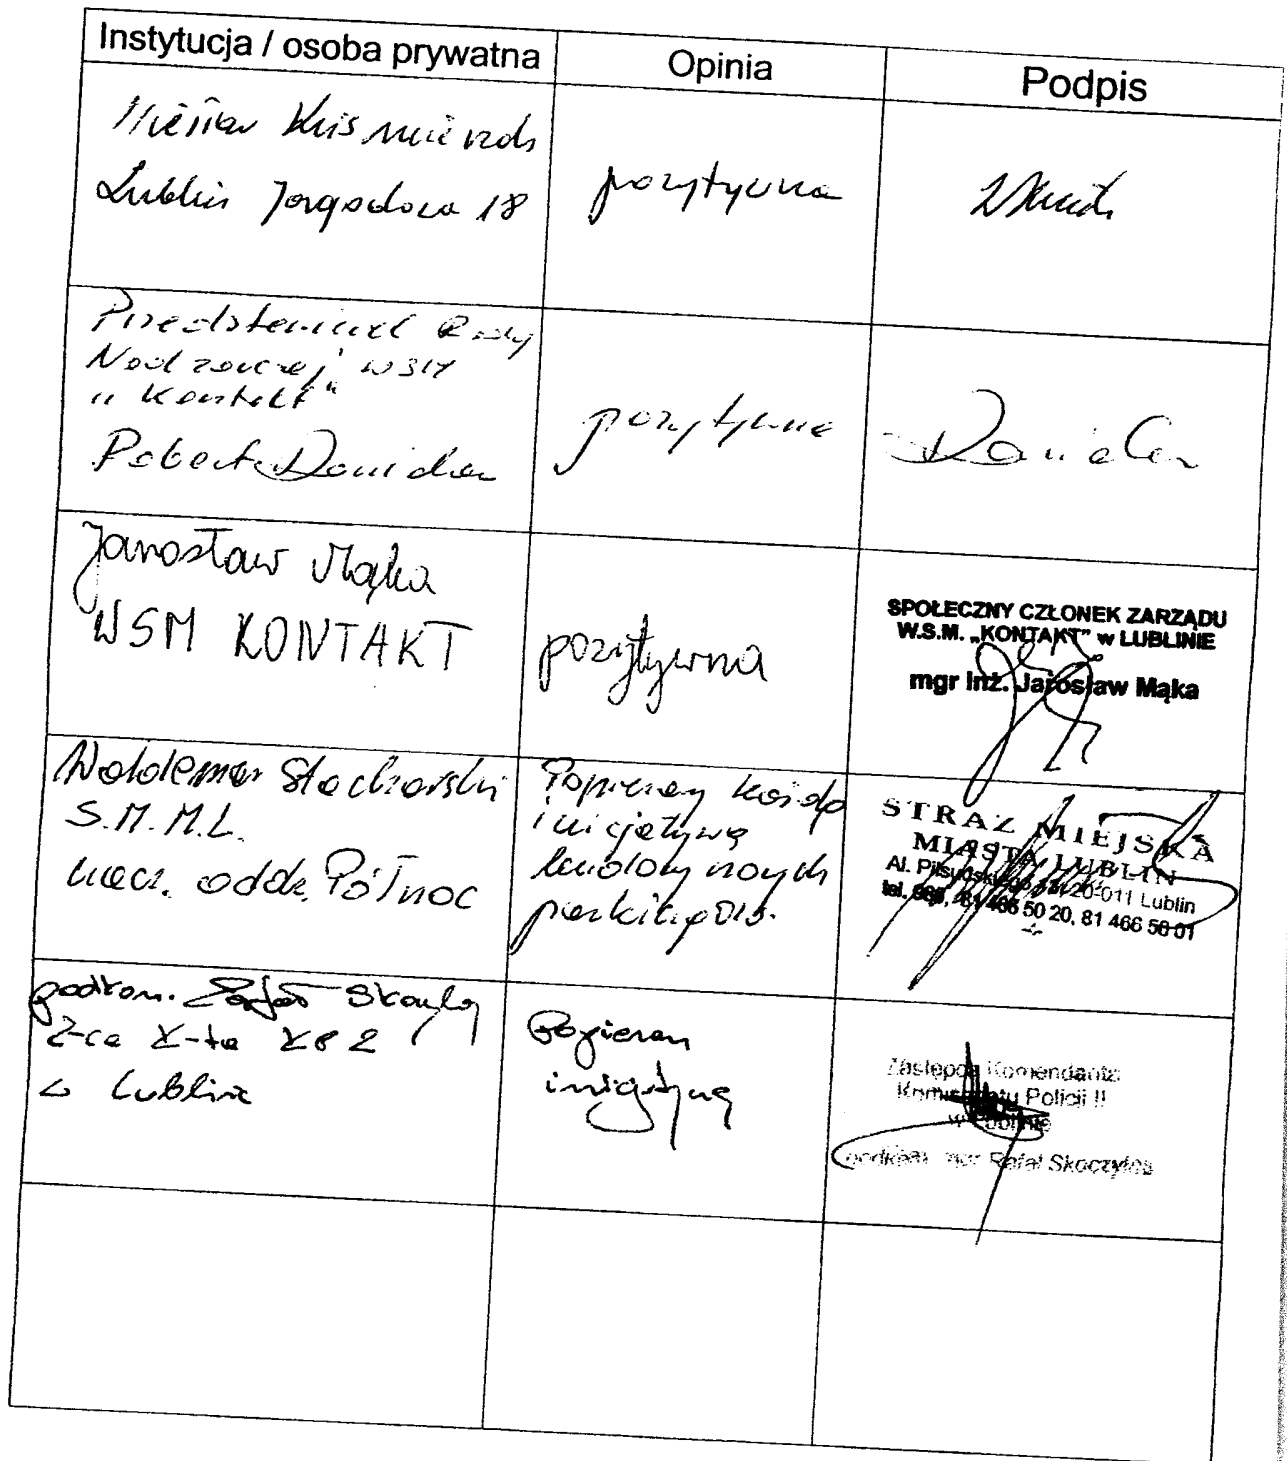 Instytucja / osoba prywatna
Opinia
Podpis
Lublin Jagodowa 18
pozytywna
Przedstawiciel Rady
Nadzorczej WSM
„Kontakt"
Robert
pozytywna
Jarosław Mąka
WSM KONTAKT
pozytywna
SPOŁECZNY CZŁONEK ZARZĄDU
W.S.M. „KONTAKT" w LUBLINIE
mgr inż. Jarosław Mąka
Waldemar Stachorski
S.M.M.L.
nacz. oddz. Północ
Popieram każdą
inicjatywę
budowy nowych
parkingów.
STRAŻ MIEJSKA
MIASTA LUBLIN
Al. Piłsudskiego 20-011 Lublin
tel. 986, 81 466 50 20, 81 466 50 01
podkom. Rafał Skoczylas
Z-ca K-ta KP 2
w Lublinie
Popieram
inicjatywę
Zastępca Komendanta
Komisariatu Policji II
w Lublinie
podkom. mgr Rafał Skoczylas